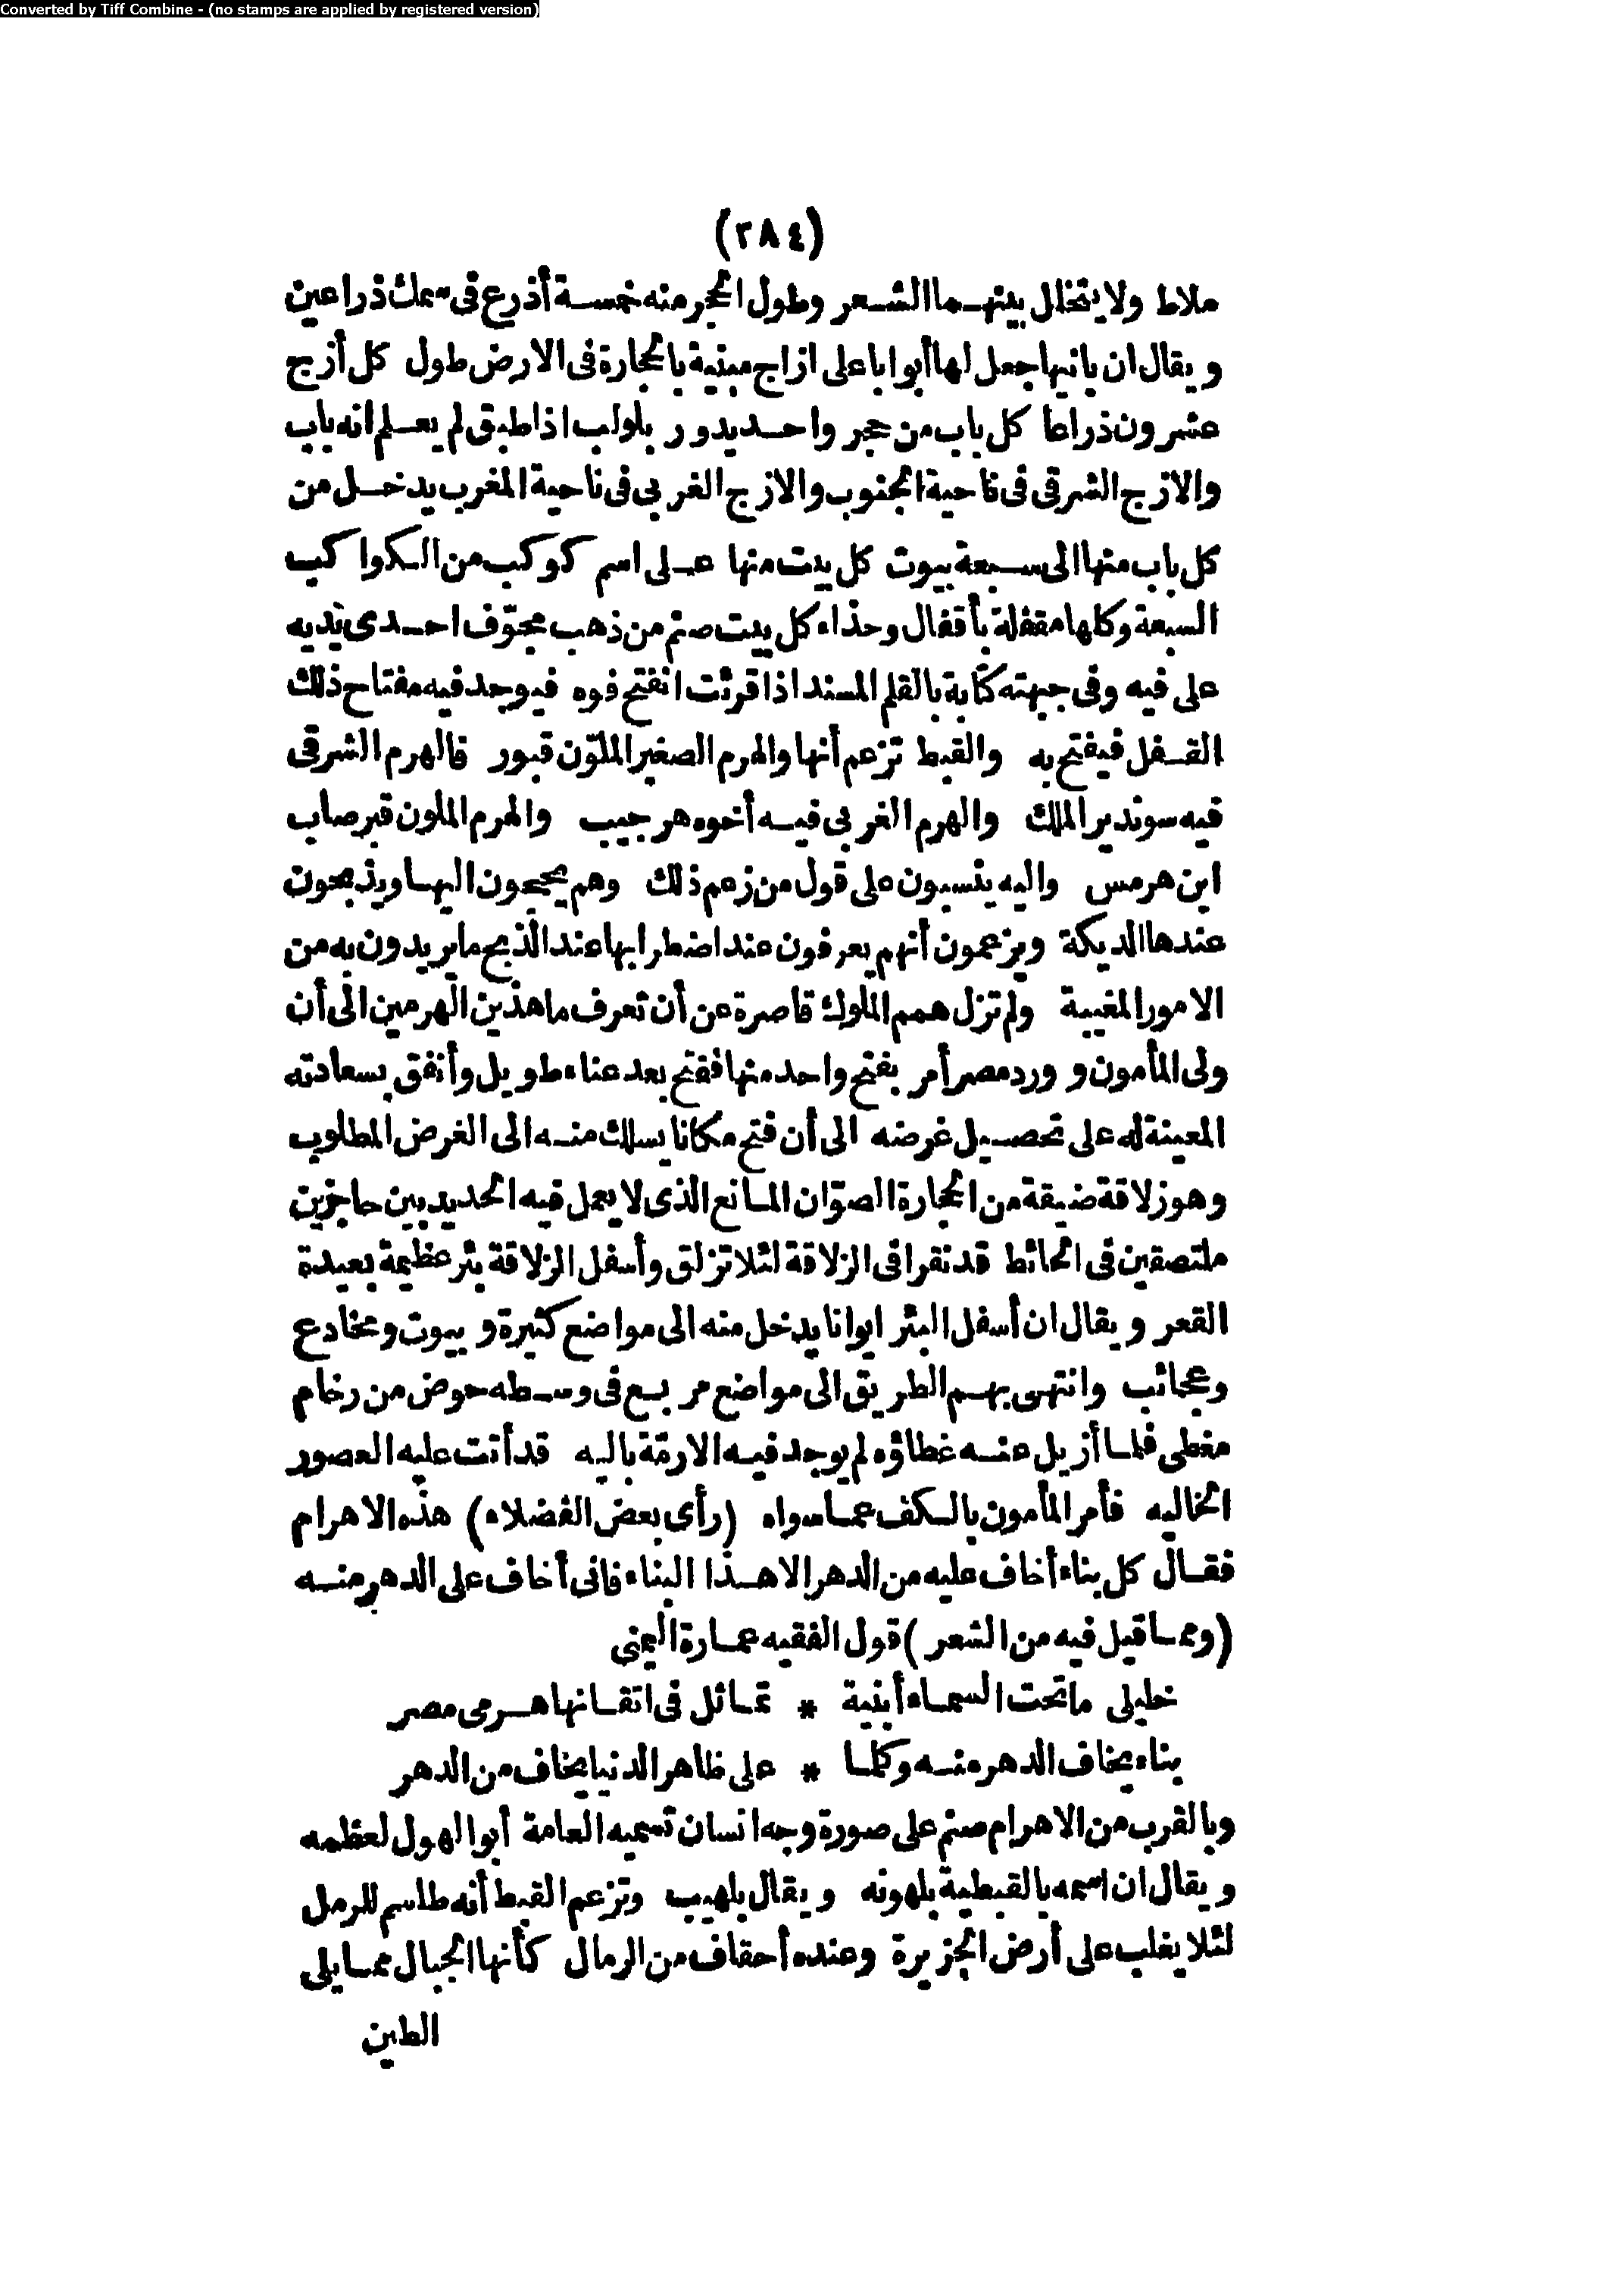 Converted by Tiff Combine - (no stamps are applied by registered version)
(٢٨٤)
ملاط ولا يتخلل بينهما الشعر وطول الحجر منه خمسة أذرع فى سمك ذراعين
ويقال ان بانيها جعل لها أبوابا على ازاج مبنية بالحجارة فى الارض طول كل أزج
عشرون ذراعا كل باب من حجر واحد يدور بلولب اذا طبق لم يعلم انه باب
والازج الشرقى فى ناحية الجنوب والازج الغربى فى ناحية المغرب يدخل من
كل باب منها الى سبعة بيوت كل بيت منها على اسم كوكب من الكواكب
السبعة وكلها مقفلة بأقفال وحذاء كل بيت صنم من ذهب مجوّف احدى يديه
على فيه وفى جبهته كتابة بالقلم المسند اذا قرئت انفتح فوه فيوجد فيه مفتاح ذلك
القفل فيفتح به والقبط تزعم أنها والهرم الصغير الملوّن قبور فالهرم الشرقى
فيه سوندير الملك والهرم الغربى فيه أخوه هرجيب والهرم الملون قبر صاب
ابن هرمس واليه ينسبون على قول من زعم ذلك وهم يحجون اليها ويذبحون
عندها الديكة ويزعمون أنهم يعرفون عند اضطرابها عند الذبح ما يريدون به من
الامور المغيبة ولم تزل همم الملوك قاصرة عن أن تعرف ما هذين الهرمين الى أن
ولى المأمون وورد مصر أمر بفتح واحد منها ففتح بعد عناء طويل وأنفق بسعادته
المعينة له على تحصيل غرضه الى أن فتح مكانا يسلك منه الى الغرض المطلوب
وهو زلاقة ضيقة من الحجارة الصوّان المانع الذى لا يعمل فيه الحديد بين حاجزين
ملتصقين فى الحائط قد نقرا فى الزلاقة لئلا تزلق وأسفل الزلاقة بئر عظيمة بعيدة
القعر ويقال ان أسفل البئر ايوانا يدخل منه الى مواضع كثيرة وبيوت ومخادع
وعجائب وانتهى بهم الطريق الى مواضع مربع فى وسطه حوض من رخام
مغطى فلما أزيل عنه غطاؤه لم يوجد فيه الا رمّة باليه قد أتت عليه العصور
الخاليه فأمر المأمون بالكف عما سواه (رأى بعض الفضلاء) هذه الاهرام
فقال كل بناء أخاف عليه من الدهر الا هذا البناء فانى أخاف على الدهر منه
(ومما قيل فيه من الشعر) قول الفقيه عمارة اليمنى
خليلى ما تحت السماء أبنية * تماثل فى اتقانها هرمى مصر
بناء يخاف الدهر منه وكلما * على ظاهر الدنيا يخاف من الدهر
وبالقرب من الاهرام صنم على صورة وجه انسان تسميه العامة أبو الهول لعظمه
ويقال ان اسمه بالقبطية بلهونه ويقال بلهيب وتزعم القبط أنه طلسم للرمل
لئلا يغلب على أرض الجزيرة وعنده أحقاف من الرمال كأنها الجبال مما يلى
الطين